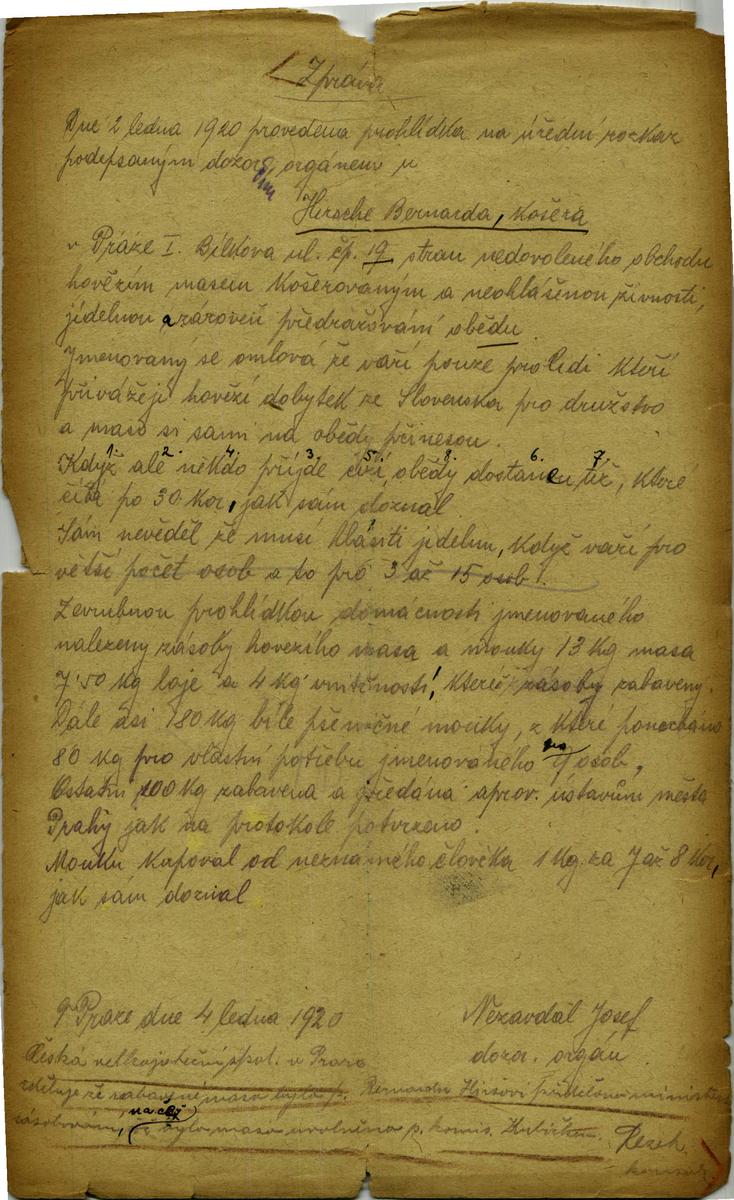 Zpráva
Dne 2 ledna 1920 provedena prohlídka na úřední rozkaz
podepsaným dozor. orgánem u
Hirsche Bernarda, košera
v Praze I. Bílkova ul. čp. 19 stran nedovoleného obchodu
hovězím masem košerovaným a neohlášenou živnosti,
jídelnou a zároveň předražování obědu
Jmenovaný se omlová že vaří pouze pro lidi kteří
přivážejí hovězí dobytek ze Slovenska pro družstvo
a maso si sami na obědy přinesou.
1. 2. 4. 3. 5. 8. 6. 7.
Když ale někdo přijde cizí, obědy dostane též, které
čítá po 30 Kor, jak sám doznal
Sám nevěděl že musí hlásiti jídelnu, když vaří pro
větší počet osob a to pro 3 až 15 osob.
Zevrubnou prohlídkou domácnosti jmenovaného
nalezeny zásoby hovezího masa a mouky 13 Kg masa
7·50 Kg loje a 4 Kg vnitřností, které zásoby zabaveny.
Dále asi 180 Kg bílé pšeničné mouky, z které ponecháno
80 kg pro vlastní potřebu jmenovaného pro 7 osob,
Ostatní 100 Kg zabavena a předána aprov. ústavům města
Prahy jak na protokole potvrzeno.
Mouku kupoval od neznámého človéka 1 Kg. za 7 až 8 Kor,
jak sám doznal
V Praze dne 4 ledna 1920
Nezavdal Josef
dozor. orgán
Česká velkojateční spol. v Praze
sděluje že zabavené maso bylo p. Bernardu Hirsovi přiděleno minister
zásobování, na což bylo maso uvolněno p. komis.
Rezek